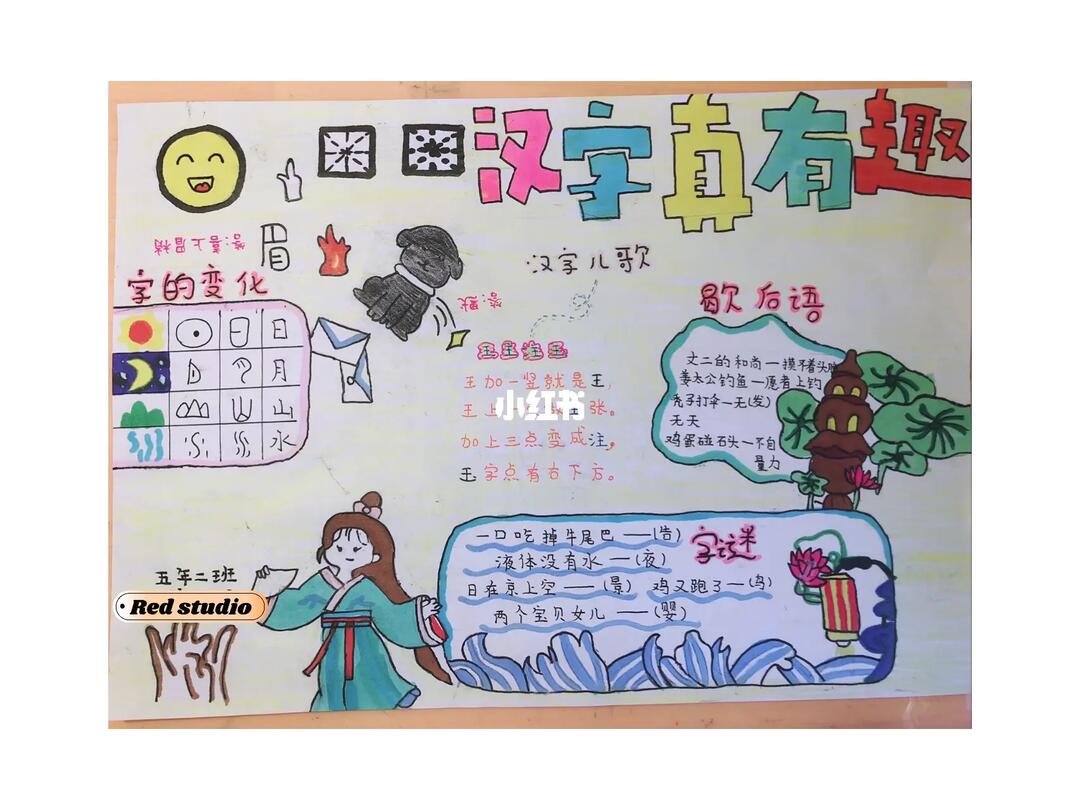 汉字真有趣
眉
答:喜上眉梢
答:默
字的变化
日
月
山
水
汉字儿歌
王加一竖就是王,
王上
张。
小红书
加上三点变成注,
玉字点有右下方。
歇后语
文二的和尚一摸不着头
姜太公钓鱼一愿者上钓
秃子打伞一无(发)
无天
鸡蛋碰石头一不自
量力
字谜
一口吃掉牛尾巴——(告)
液体没有水——(夜)
日在京上空——(景) 鸡又跑了——(鸟)
两个宝贝女儿——(婴)
五年二班
Red studio